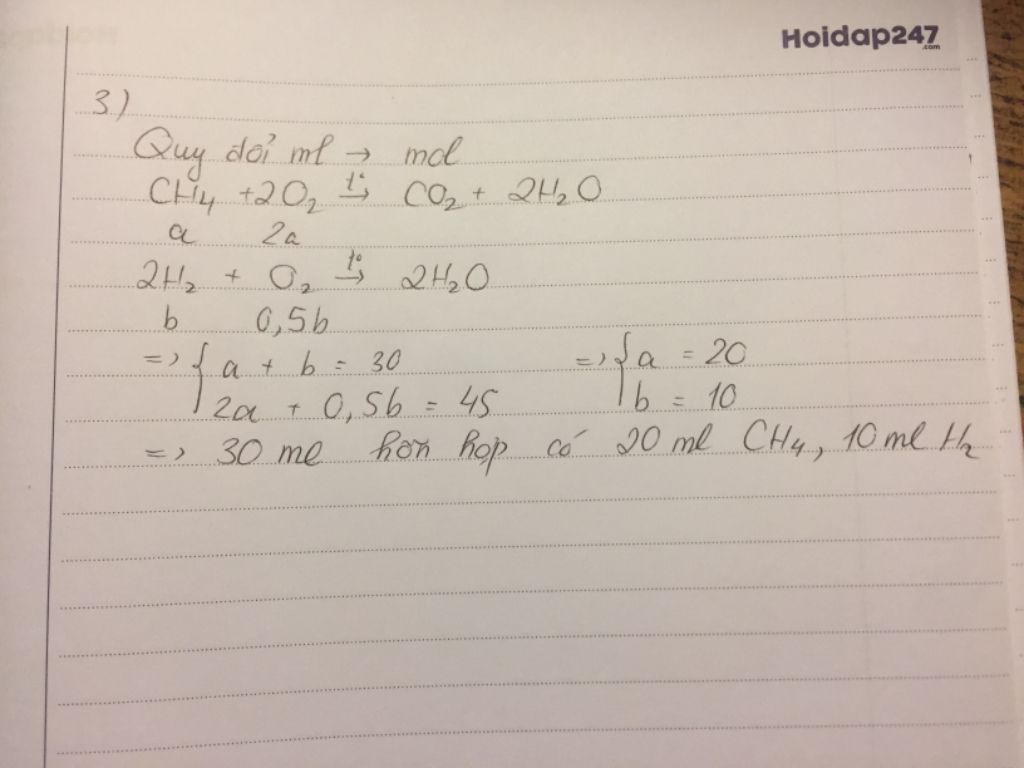 Hoidap247
.com
3)
Quy đổi ml → mol
CH₄ + 2O₂ t°→ CO₂ + 2H₂O
a 2a
2H₂ + O₂ t°→ 2H₂O
b 0,5b
=> { a + b = 30 => { a = 20
2a + 0,5b = 45 b = 10
=> 30 ml hỗn hợp có 20 ml CH₄, 10 ml H₂